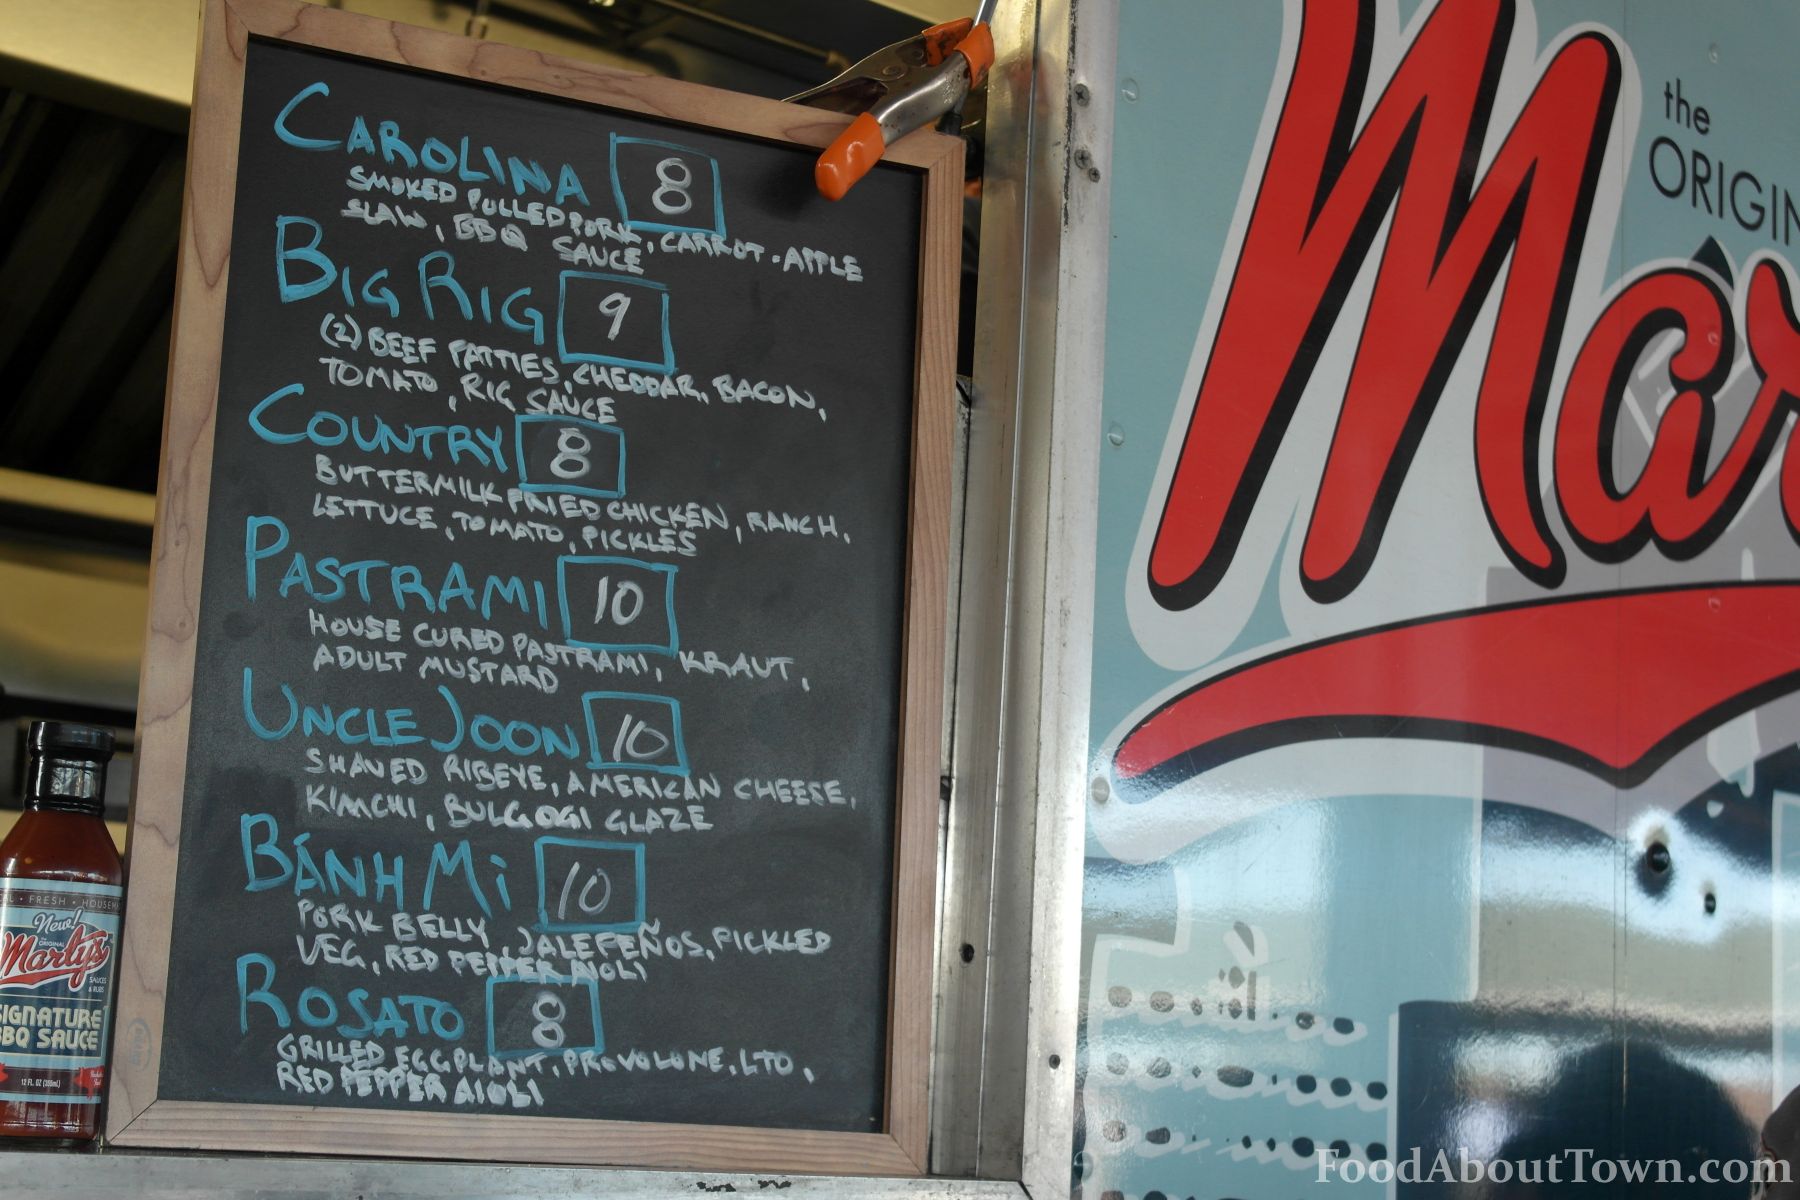 CAROLINA 8
SMOKED PULLED PORK, CARROT-APPLE
SLAW, BBQ SAUCE
BIG RIG 9
(2) BEEF PATTIES, CHEDDAR, BACON,
TOMATO, RIG SAUCE
COUNTRY 8
BUTTERMILK FRIED CHICKEN, RANCH,
LETTUCE, TOMATO, PICKLES
PASTRAMI 10
HOUSE CURED PASTRAMI, KRAUT,
ADULT MUSTARD
UNCLE JOON 10
SHAVED RIBEYE, AMERICAN CHEESE,
KIMCHI, BULGOGI GLAZE
BÁNH Mi 10
PORK BELLY, JALEPEÑOS, PICKLED
VEG, RED PEPPER AIOLI
ROSATO 8
GRILLED EGGPLANT, PROVOLONE, LTO,
RED PEPPER AIOLI
the
ORIGIN
Mar
FRESH • HOUSEM
New!
the ORIGINAL
Marty's
SAUCES
& RUBS
SIGNATURE
BBQ SAUCE
12 FL. OZ (355mL)
FoodAboutTown.com